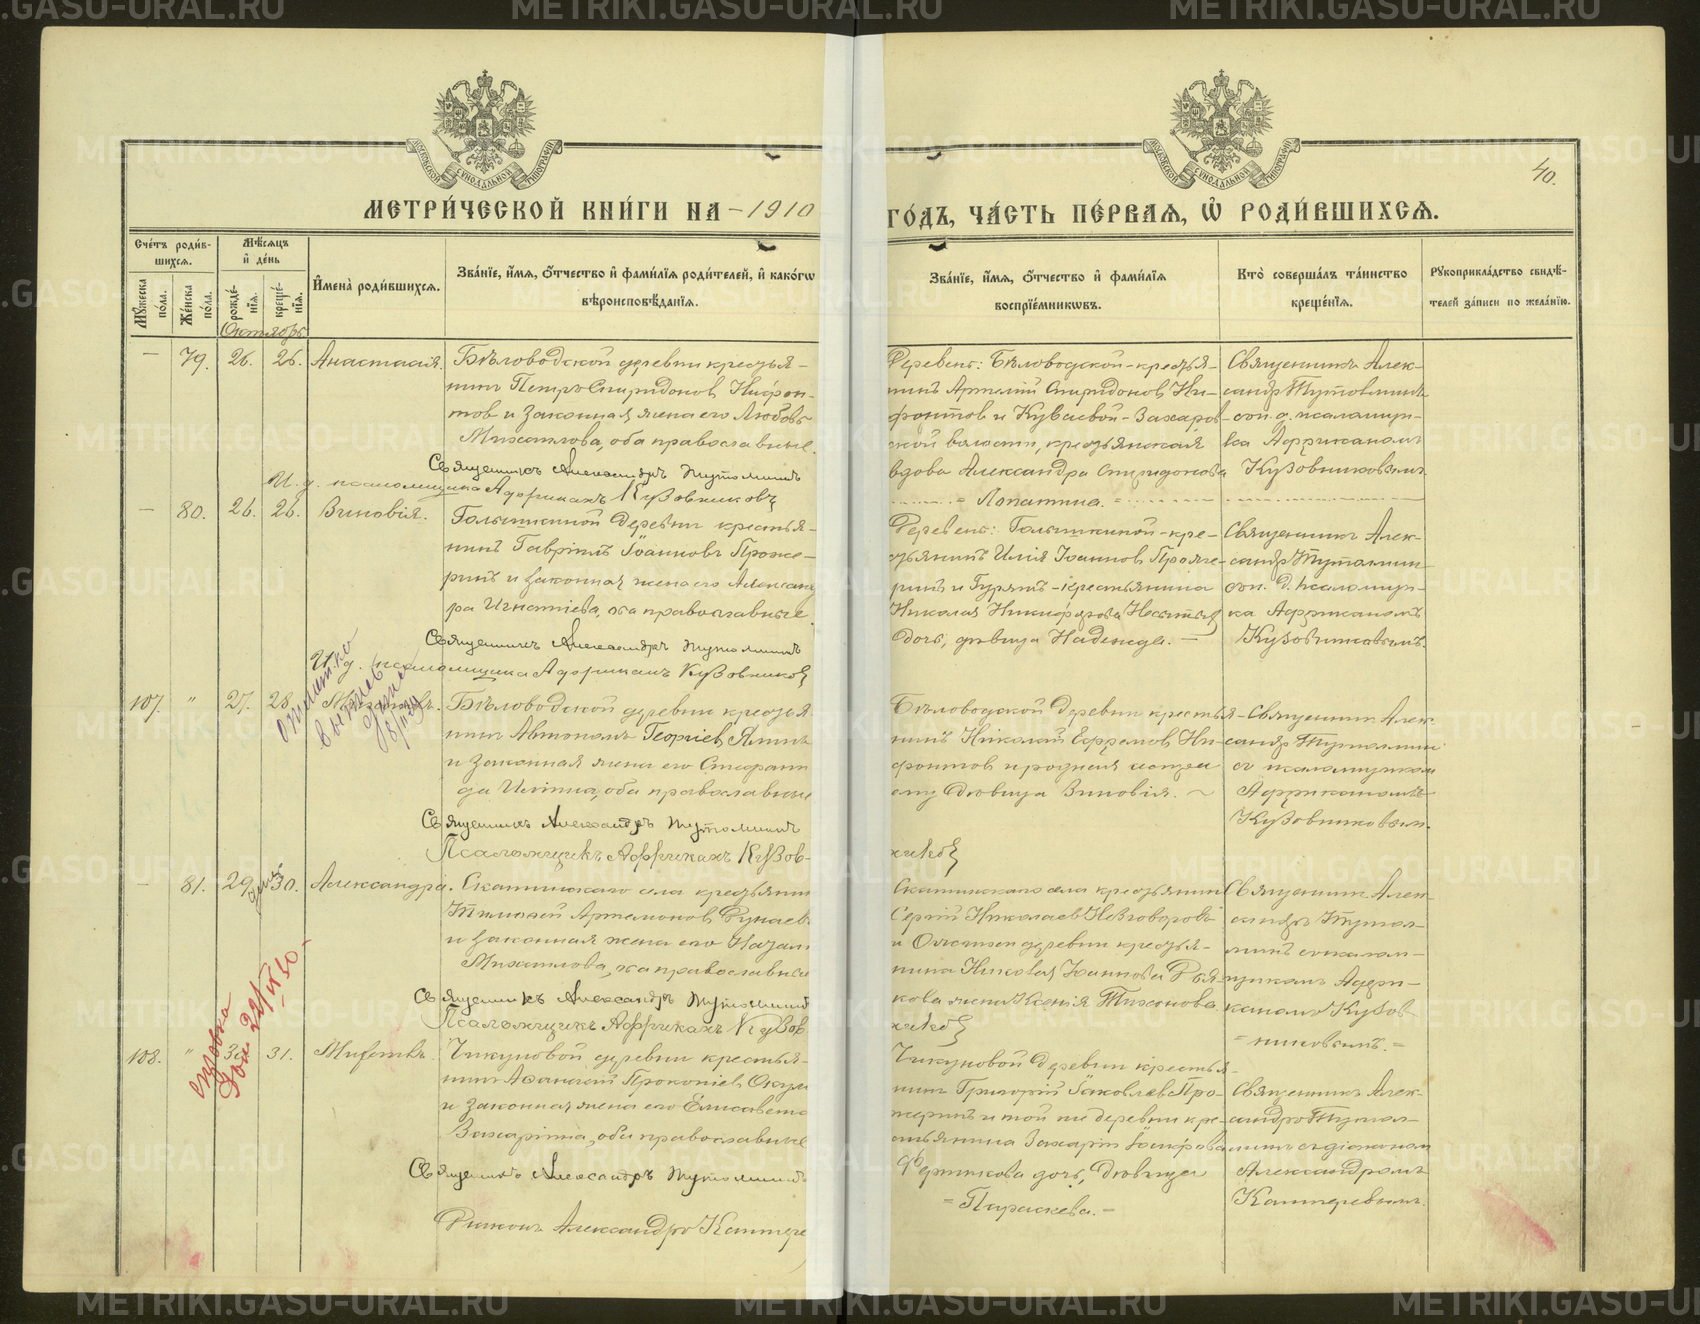 МЕТРИ́ЧЕСКОЙ КНИ́ГИ НА -1910
ГО́ДЪ, ЧА́СТЬ ПЕ́РВАѦ, Ѡ҆ РОДИ́ВШИХСѦ.
40.
Сче́тъ роди́в-
шихсѧ.
Мѣ́сѧцъ
и҆ де́нь
Мꙋ́жеска по́ла.
Же́нска по́ла.
рожде́-
нїѧ.
креще́-
нїѧ.
И҆мена̀ роди́вшихсѧ.
Зва́нїе, и҆́мѧ, ѻ҆́тчество и҆ фами́лїѧ роди́телей, и҆ како́гѡ
вѣроисповѣ́данїѧ.
Зва́нїе, и҆́мѧ, ѻ҆́тчество и҆ фами́лїѧ
воспрїе́мникѡвъ.
Кто̀ соверша́лъ та́инство
креще́нїѧ.
Рꙋкоприкла́дство свидѣ́-
телей за́писи по жела́нїю.
Октябрь
— 79. 26. 26. Анастасія.
Бѣловодской деревни крестья-
нинъ Петръ Спиридоновъ Нифон-
товъ и законная жена его Любовь
Михаилова, оба православные.
Священникъ Александръ Тутолминъ
И. д. псаломщика Африканъ Кузовниковъ
Деревень: Бѣловодской - крестья-
нинъ Артемій Спиридоновъ Ни-
фонтовъ и Куваевой - Захаров-
ской волости, крестьянская
вдова Александра Спиридонова
= Лопатина. =
Священникъ Алек-
сандръ Тутолминъ
съ и. д. псаломщи-
ка Африканомъ
Кузовниковымъ
— 80. 26. 26. Зиновія.
деревни крестья-
нинъ Гавріилъ Іоанновъ Проже-
ринъ и законная жена его Александ
ра Игнатіева, оба православные.
Священникъ Александръ Тутолминъ
И. д. псаломщика Африканъ Кузовниковъ
Деревень: кре-
стьянинъ Илія Іоанновъ Проже-
ринъ и крестьянина
Николая Никифорова
дочь, дѣвица Надежда. —
Священникъ Алек-
сандръ Тутолмин-
съ и. д. псаломщи-
ка Африканомъ
Кузовниковымъ.
107. " 27. 28.
Бѣловодской деревни крестья
нинъ Автономъ Георгіевъ
и законная жена его Стефани
да Иліина, оба православные
Священникъ Александръ Тутолминъ
Псаломщикъ Африканъ Кузов-
Бѣловодской деревни крестья-
нинъ Николай Ефремовъ Ни-
фонтовъ и родная
ему дѣвица Зиновія. ~
никовъ
Священникъ Алек
сандръ Тутолмин
съ псаломщикомъ
Африканомъ
Кузовниковым.
— 81. 29. 30. Александра.
Скатинскаго села крестьянин
Тимофей Артамоновъ
и законная жена его
Михаилова, оба православные
Священникъ Александръ Тутолминъ
Псаломщикъ Африканъ Кузов
Скатинскаго села крестьянин
Сергій Николаевъ
и деревни крестья-
нина Николая Іоаннова
жена Ксенія Тихонова
никовъ
Священникъ Алек
сандръ Тутол-
минъ съ псалом-
щикомъ Афри-
каномъ Кузов
= никовымъ. =
22/II 30
108. " 30 31.
Чикуновой деревни крестья-
нинъ Афанасій Прокопіевъ
и законная жена его Елисавета
Захаріина, оба православные
Священникъ Александръ Тутолминъ
Діаконъ Александръ Каптере
Чикуновой деревни крестья-
нинъ Григорій Іаковлевъ Про-
жеринъ и той же деревни кре-
стьянина Захарія Іосифова
дочь, дѣвица
= Параскева. =
Священникъ Алек-
сандръ Тутол-
минъ съ діакономъ
Александромъ
Каптеревымъ.